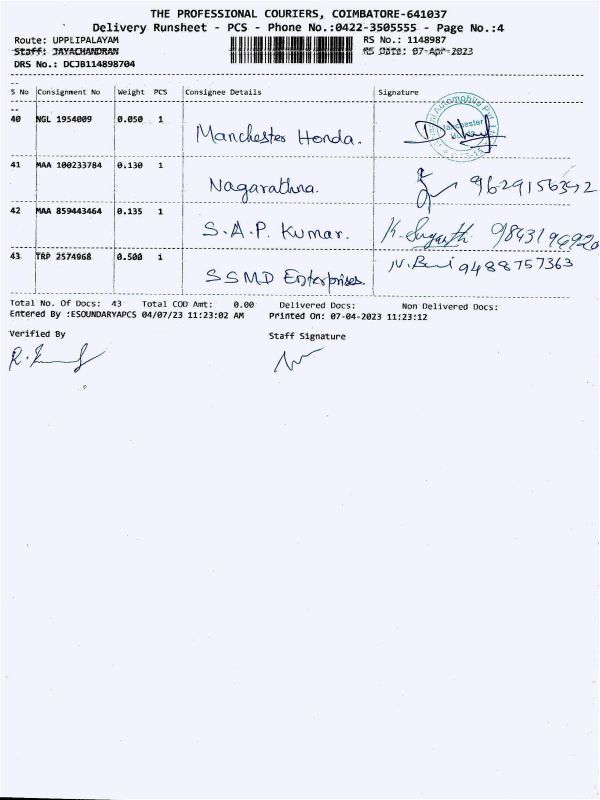 THE PROFESSIONAL COURIERS, COIMBATORE-641037
Delivery Runsheet - PCS - Phone No.:0422-3505555 - Page No.:4
Route: UPPLIPALAYAM RS No.: 1148987
Staff: JAYACHANDRAN RS Date: 07-Apr-2023
DRS No.: DCJB114898704
S No Consignment No Weight PCS Consignee Details Signature
40 NGL 1954009 0.050 1 Manchester Honda.
41 MAA 100233784 0.130 1 Nagarathna. 9629156342
42 MAA 859443464 0.135 1 S.A.P. Kumar.
43 TRP 2574968 0.500 1 SSMD Enterprises. 9488757363
Total No. Of Docs: 43 Total COD Amt: 0.00 Delivered Docs: Non Delivered Docs:
Entered By :ESOUNDARYAPCS 04/07/23 11:23:02 AM Printed On: 07-04-2023 11:23:12
Verified By Staff Signature